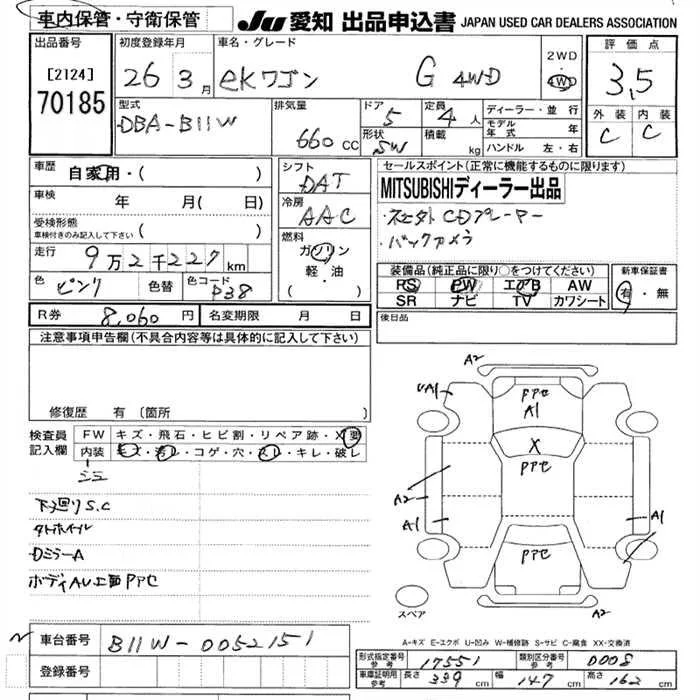 車内保管・守衛保管 JU 愛知 出品申込書 JAPAN USED CAR DEALERS ASSOCIATION
出品番号 初度登録年月 車名・グレード 2WD 評価点
[2124] 26年 3月 ekワゴン G 4WD 4WD 3,5
70185 型式 排気量 ドア 定員 ディーラー・並行 外装 内装
DBA-B11W 660cc 5 4人 モデル年式 年 C C
形状 SW 積載 kg ハンドル 左・右
車歴 自家用・( ) シフト セールスポイント(正常に機能するものに限ります)
車検 年 月( 日) DAT MITSUBISHIディーラー出品
受検形態 冷房 ・社外CDプレーヤー
車検付きのみ記入して下さい ( ) AAC ・バックカメラ
走行 9万2千227km 燃料
ガソリン
軽・油
( ・ )
装備品(純正品に限り○をつけてください) 新車保証書
色 ピンク 色替 色コード P38 PS PW エアB AW 有・無
SR ナビ TV カワシート
R券 8,060円 名変期限 月 日 後日品
注意事項申告欄(不具合内容等は具体的に記入して下さい)
修復歴 有(箇所
検査員 FW キズ・飛石・ヒビ割・リペア跡・X要
記入欄 内装 キズ・汚レ・コゲ・穴・スレ・キレ・破レ
下廻りS.C
タトホイール
DミラーA
A2
A1
PアセA1
X
Pアセ
A2
A1
A1
Pアセ
A2
スペア
A-キズ E-エクボ U-凹み W-補修跡 S-サビ C-腐食 XX-交換済
車台番号 B11W-0052151
登録番号
形式指定番号 参考 17551 類別区分番号 参考 0008
車庫証明用 参考 長さ 339cm 幅 147cm 高さ 162cm